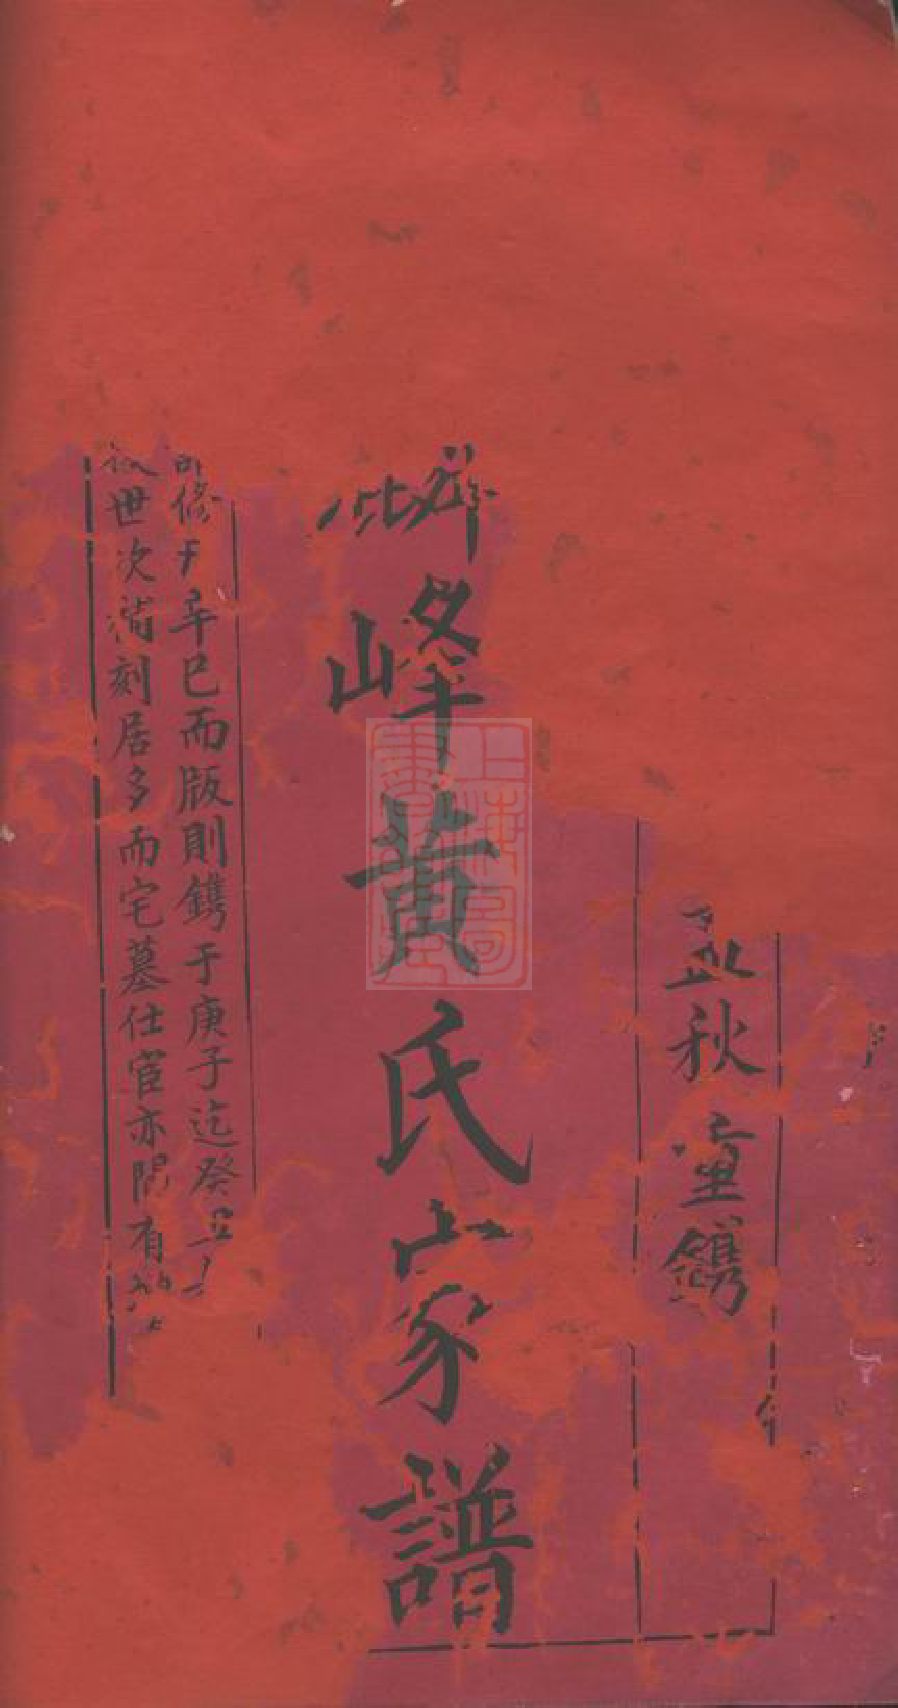 孟秋重鐫
峰黃氏家譜
修于辛巳而版則鐫于庚子迄癸丑
世次漏刻居多而宅墓仕宦亦間有
上海圖書館